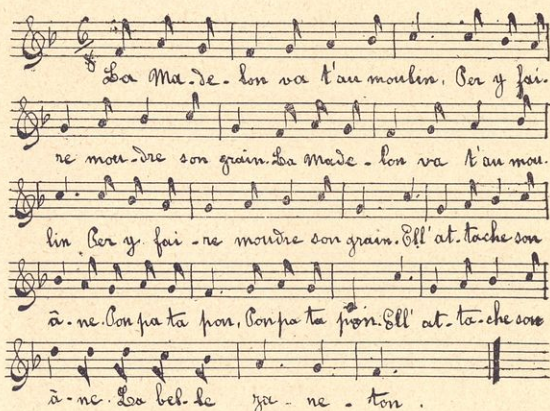 La Ma-de-lon va t'au moulin, Per y fai-
re mou-dre son grain. La Made-lon va t'au mou-
lin Per y fai-re moudre son grain. Ell' at-tache son
â-ne. Pon pa ta pon, Pon pa ta pon. Ell' at-ta-che son
â-ne. La bel-le za-ne-ton.